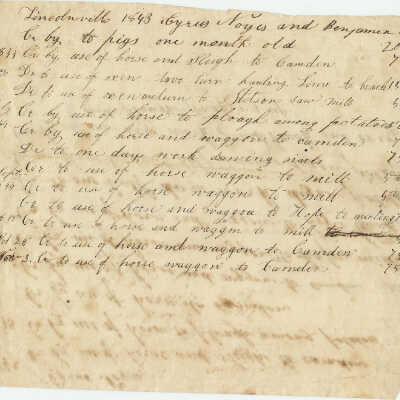 Lincolnvill 1843 Cyrus Noyes and Benjamin
Cr by to pigs one month old
Cr by use of horse and sleigh to Camden 7
Dr to use of oxen two turn hauling to beach
Dr to use of oxen return to Stetson saw mill
Cr by use of horse to plough among potatoes
Cr by use of horse and waggon to camden 7
Dr to one days work sawing 75
Cr to use of horse waggon to mill 50
Cr to use of horse waggon to mill 5
Cr to use of horse and waggon to Hope to meeting
Cr to use of horse and waggon to mill
26 Cr to use of horse and waggon to Camden 75
Nov 3 Cr to use of horse waggon to Camden 75